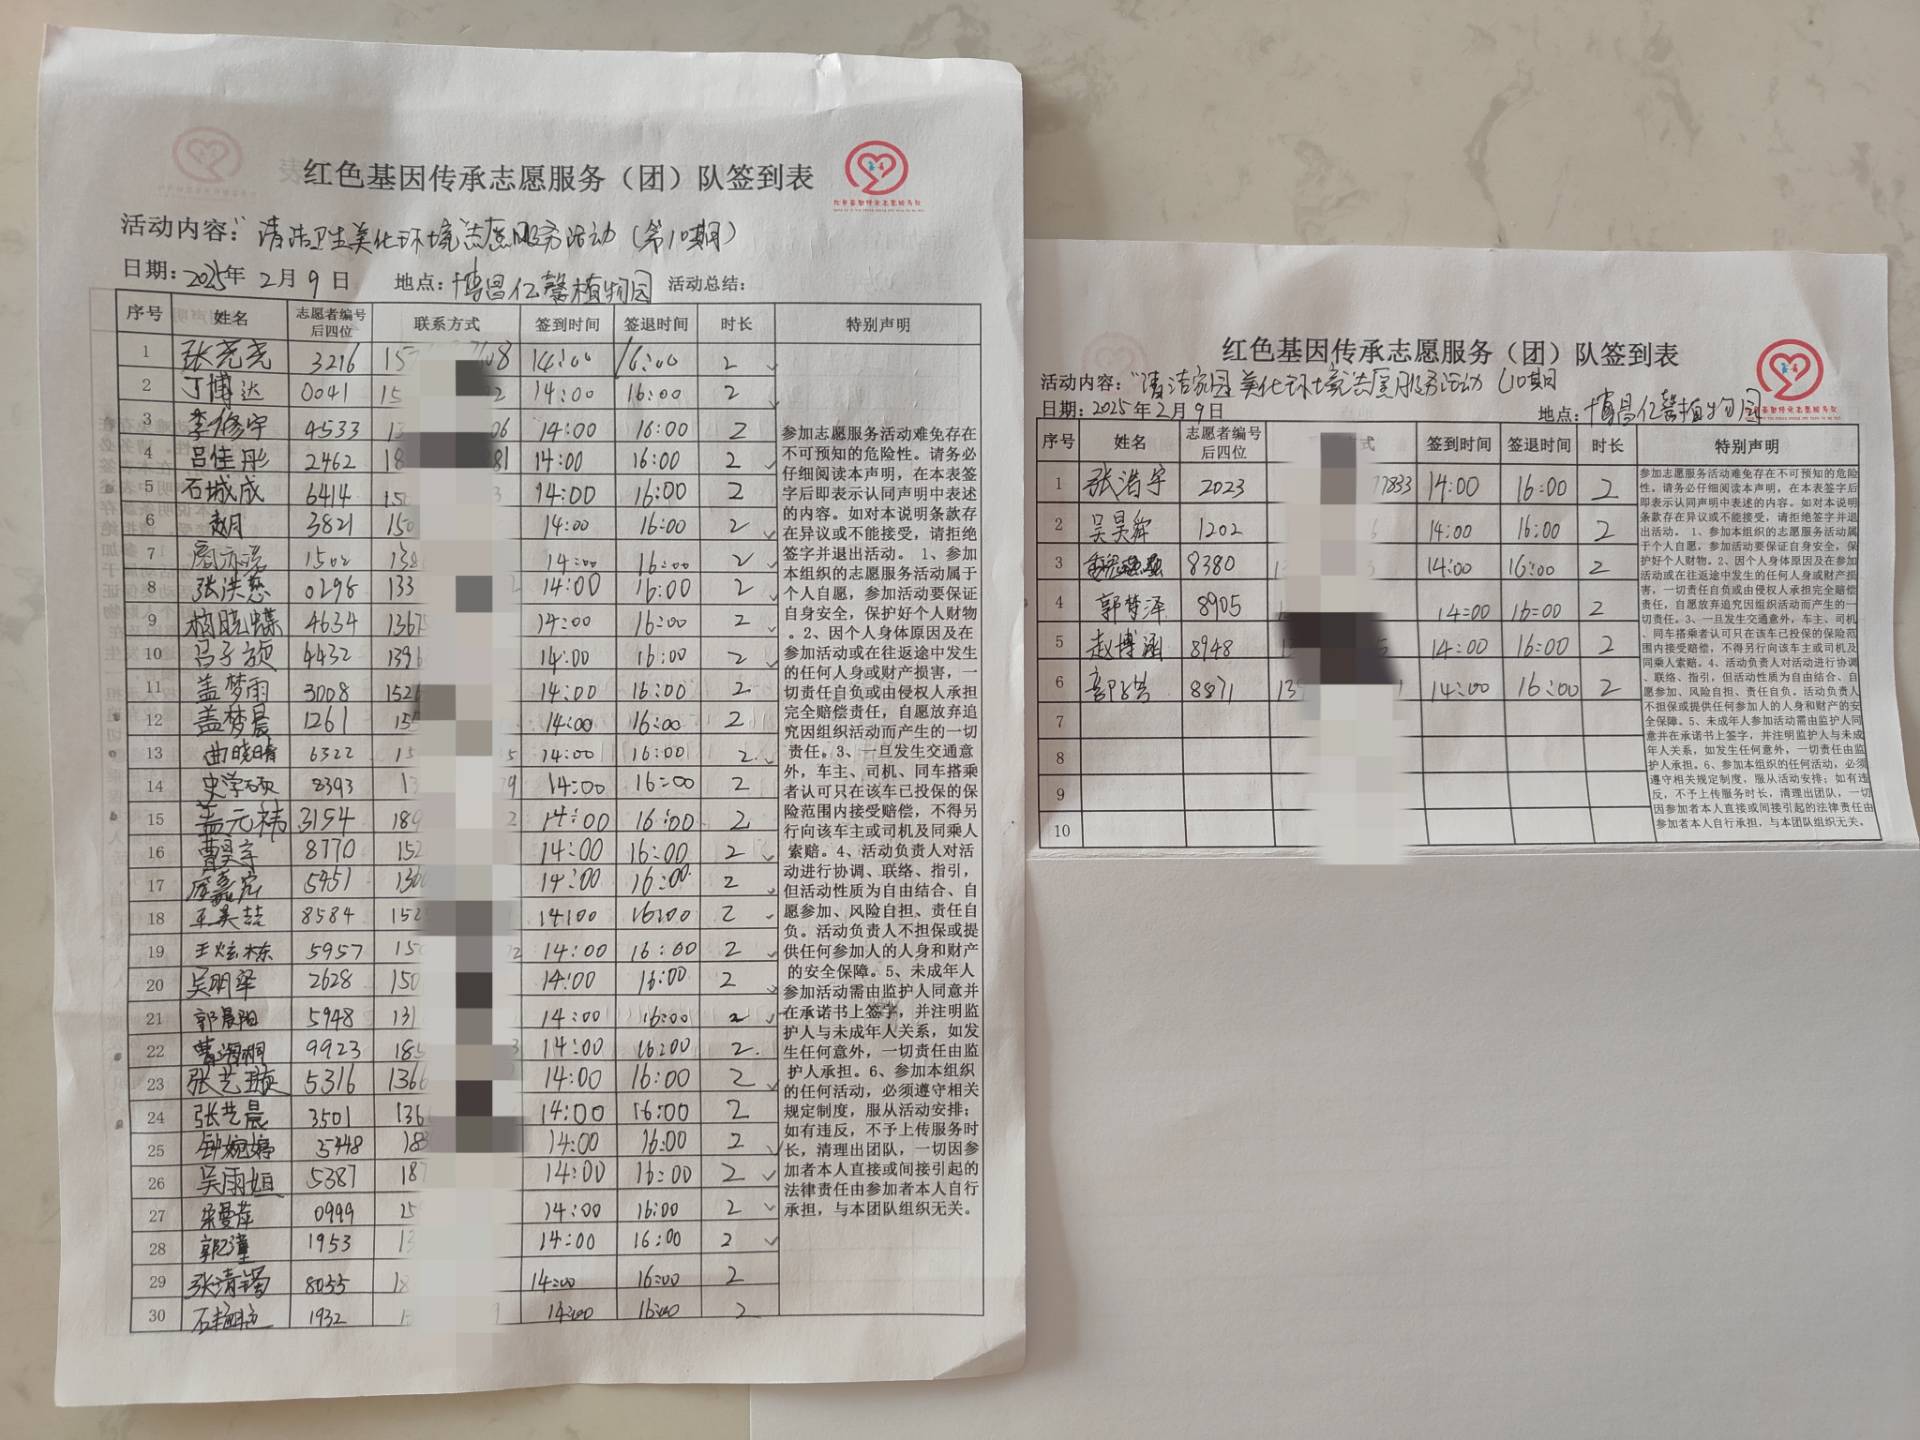 红色基因传承志愿服务（团）队签到表
活动内容：“清洁卫生美化环境志愿服务活动（第10期）
日期：2025年 2月 9 日 地点：博昌仁馨植物园 活动总结：
序号 姓名 志愿者编号后四位 联系方式 签到时间 签退时间 时长 特别声明
1 张尧尧 3216 14:00 16:00 2
2 丁博达 0041 14:00 16:00 2
3 李修宇 4533 14:00 16:00 2
4 吕佳彤 2462 14:00 16:00 2
5 石城成 6414 14:00 16:00 2
6 赵月 3821 14:00 16:00 2
7 1502 14:00 16:00 2
8 0295 14:00 16:00 2
9 4634 14:00 16:00 2
10 4432 14:00 16:00 2
11 盖梦雨 3008 14:00 16:00 2
12 盖梦晨 1261 14:00 16:00 2
13 曲晓晴 6322 14:00 16:00 2
14 史学硕 8393 14:00 16:00 2
15 盖元祎 3154 14:00 16:00 2
16 曹昊宇 8770 14:00 16:00 2
17 5951 14:00 16:00 2
18 王美喆 8584 14:00 16:00 2
19 王炫栋 5957 14:00 16:00 2
20 2628 14:00 16:00 2
21 郭晨阳 5948 14:00 16:00 2
22 9923 14:00 16:00 2
23 张艺璇 5316 14:00 16:00 2
24 张艺晨 3501 14:00 16:00 2
25 钟婉婷 5448 14:00 16:00 2
26 吴雨姐 5387 14:00 16:00 2
27 0999 14:00 16:00 2
28 1953 14:00 16:00 2
29 8055 14:00 16:00 2
30 1932 14:00 16:00 2
参加志愿服务活动难免存在
不可预知的危险性。请务必
仔细阅读本声明，在本表签
字后即表示认同声明中表述
的内容。如对本说明条款存
在异议或不能接受，请拒绝
签字并退出活动。 1、参加
本组织的志愿服务活动属于
个人自愿，参加活动要保证
自身安全，保护好个人财物
。2、因个人身体原因及在
参加活动或在往返途中发生
的任何人身或财产损害，一
切责任自负或由侵权人承担
完全赔偿责任，自愿放弃追
究因组织活动而产生的一切
责任。3、一旦发生交通意
外，车主、司机、同车搭乘
者认可只在该车已投保的保
险范围内接受赔偿，不得另
行向该车主或司机及同乘人
索赔。4、活动负责人对活
动进行协调、联络、指引，
但活动性质为自由结合、自
愿参加、风险自担、责任自
负。活动负责人不担保或提
供任何参加人的人身和财产
的安全保障。5、未成年人
参加活动需由监护人同意并
在承诺书上签字，并注明监
护人与未成年人关系，如发
生任何意外，一切责任由监
护人承担。6、参加本组织
的任何活动，必须遵守相关
规定制度，服从活动安排；
如有违反，不予上传服务时
长，清理出团队，一切因参
加者本人直接或间接引起的
法律责任由参加者本人自行
承担，与本团队组织无关。
红色基因传承志愿服务（团）队签到表
活动内容：“清洁家园 美化环境志愿服务活动（10期
日期：2025年2月9日 地点：博昌仁馨植物园
序号 姓名 志愿者编号后四位 式 签到时间 签退时间 时长 特别声明
1 张浩宇 2023 77833 14:00 16:00 2
2 吴昊舜 1202 14:00 16:00 2
3 8380 14:00 16:00 2
4 郭梦泽 8905 14:00 16:00 2
5 赵博涵 8948 14:00 16:00 2
6 8871 14:00 16:00 2
7
8
9
10
参加志愿服务活动难免存在不可预知的危险
性。请务必仔细阅读本声明，在本表签字后
即表示认同声明中表述的内容。如对本说明
条款存在异议或不能接受，请拒绝签字并退
出活动。 1、参加本组织的志愿服务活动属
于个人自愿，参加活动要保证自身安全，保
护好个人财物。2、因个人身体原因及在参加
活动或在往返途中发生的任何人身或财产损
害，一切责任自负或由侵权人承担完全赔偿
责任，自愿放弃追究因组织活动而产生的一
切责任。3、一旦发生交通意外，车主、司机
、同车搭乘者认可只在该车已投保的保险范
围内接受赔偿，不得另行向该车主或司机及
同乘人索赔。4、活动负责人对活动进行协调
、联络、指引，但活动性质为自由结合、自
愿参加、风险自担、责任自负。活动负责人
不担保或提供任何参加人的人身和财产的安
全保障。5、未成年人参加活动需由监护人同
意并在承诺书上签字，并注明监护人与未成
年人关系，如发生任何意外，一切责任由监
护人承担。6、参加本组织的任何活动，必须
遵守相关规定制度，服从活动安排；如有违
反，不予上传服务时长，清理出团队，一切
因参加者本人直接或间接引起的法律责任由
参加者本人自行承担，与本团队组织无关。